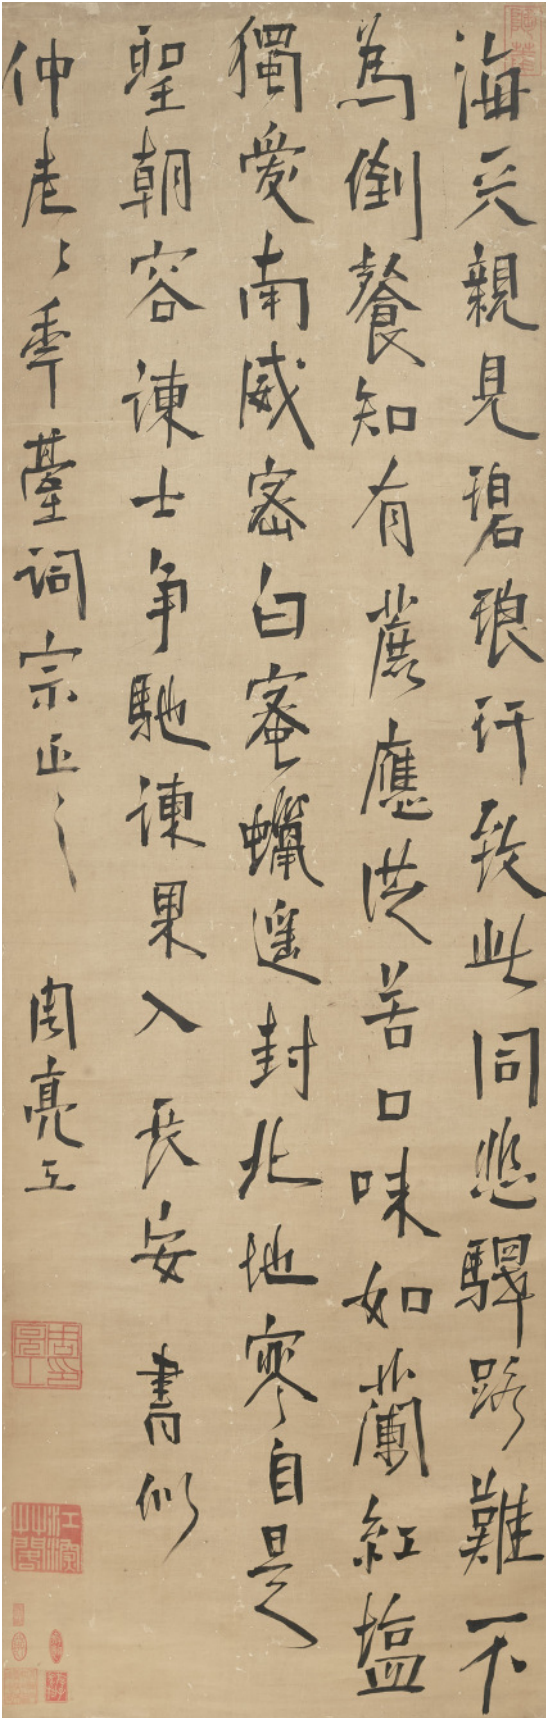 海天親見碧琅玕致此同悲驛路難不
為倒餐知有蔗應從苦口味如蘭紅塩
獨愛南威密白蜜蠟遥封北地寒自是
聖朝容諫士争馳諫果入長安書似
仲老〻年臺詞宗正之
周亮工